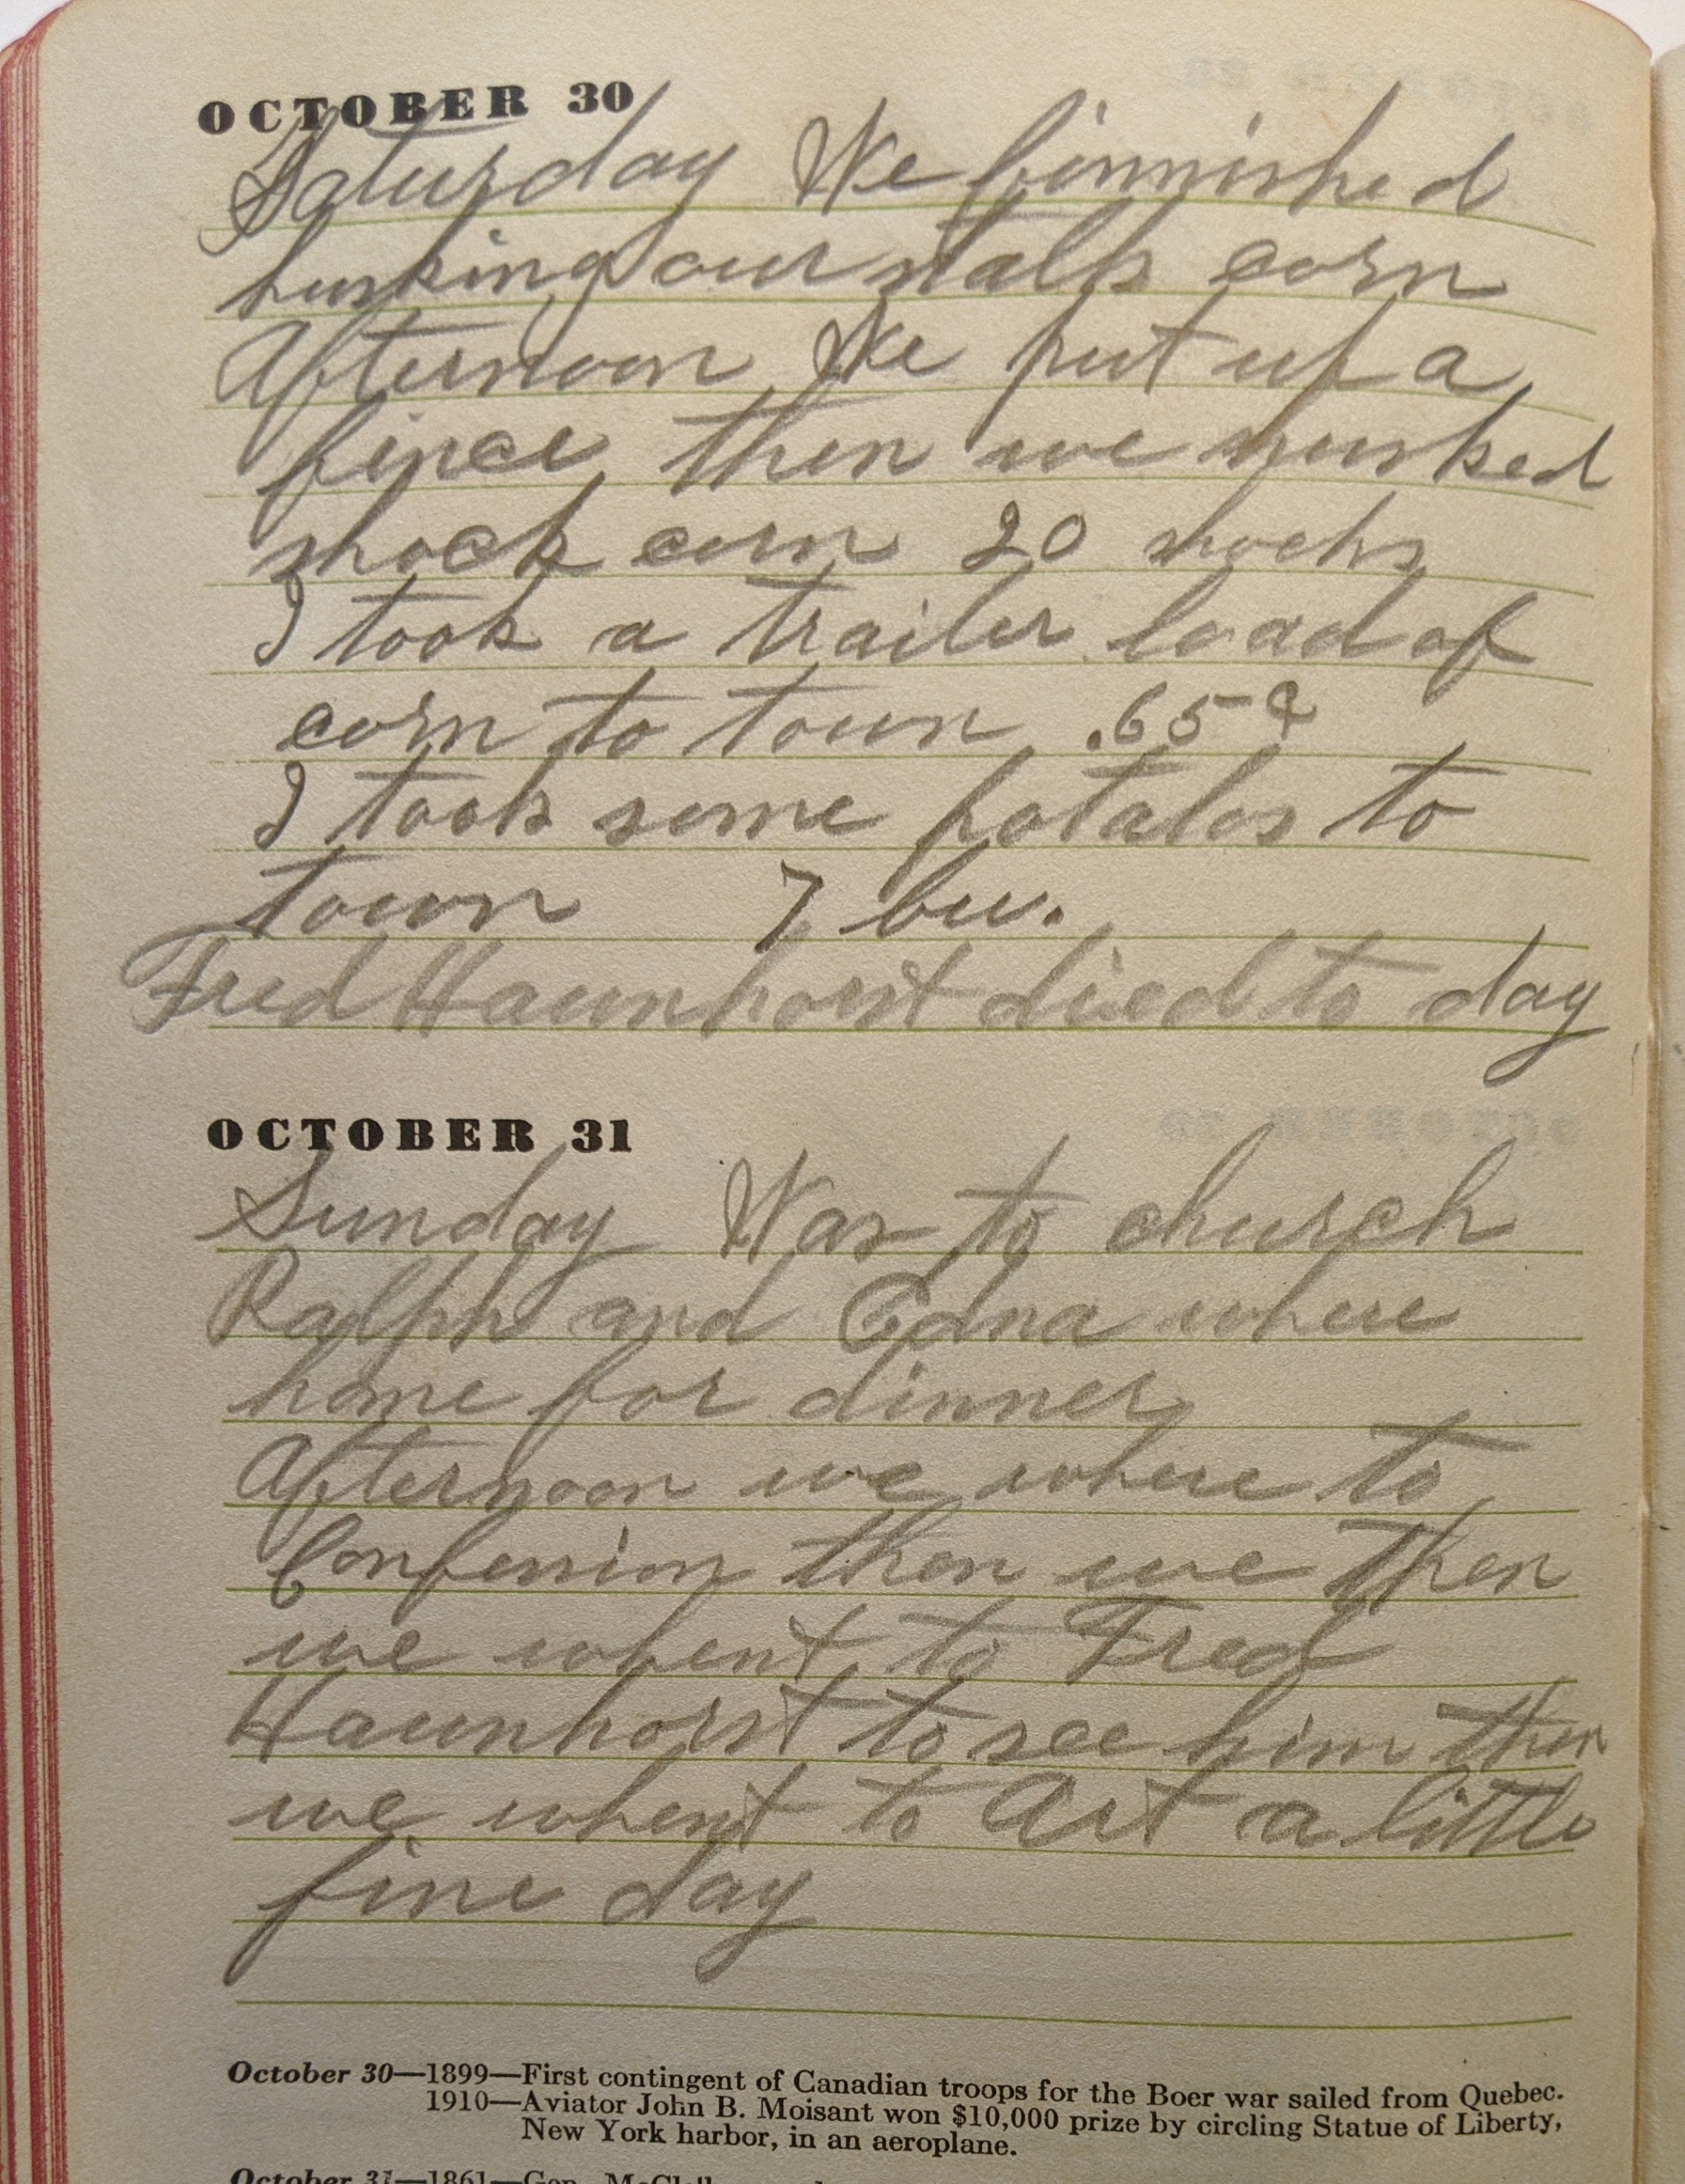 OCTOBER 30
Saturday We finnished
husking our stalk corn
Afternoon We put up a
fence then we husked
shock corn 20 shocks
I took a trailer load of
corn to town .65 ¢
I took some potatos to
town 7 bu.
Fred Haunhorst died to day
OCTOBER 31
Sunday Was to church
Ralph and Edna where
home for dinner
Afternoon we where to
Confession then we then
we whent to Fred
Haunhorst to see him then
we whent to Art a little
fine day
October 30—1899—First contingent of Canadian troops for the Boer war sailed from Quebec.
1910—Aviator John B. Moisant won $10,000 prize by circling Statue of Liberty,
New York harbor, in an aeroplane.
October 31—1861—Gen. McClell